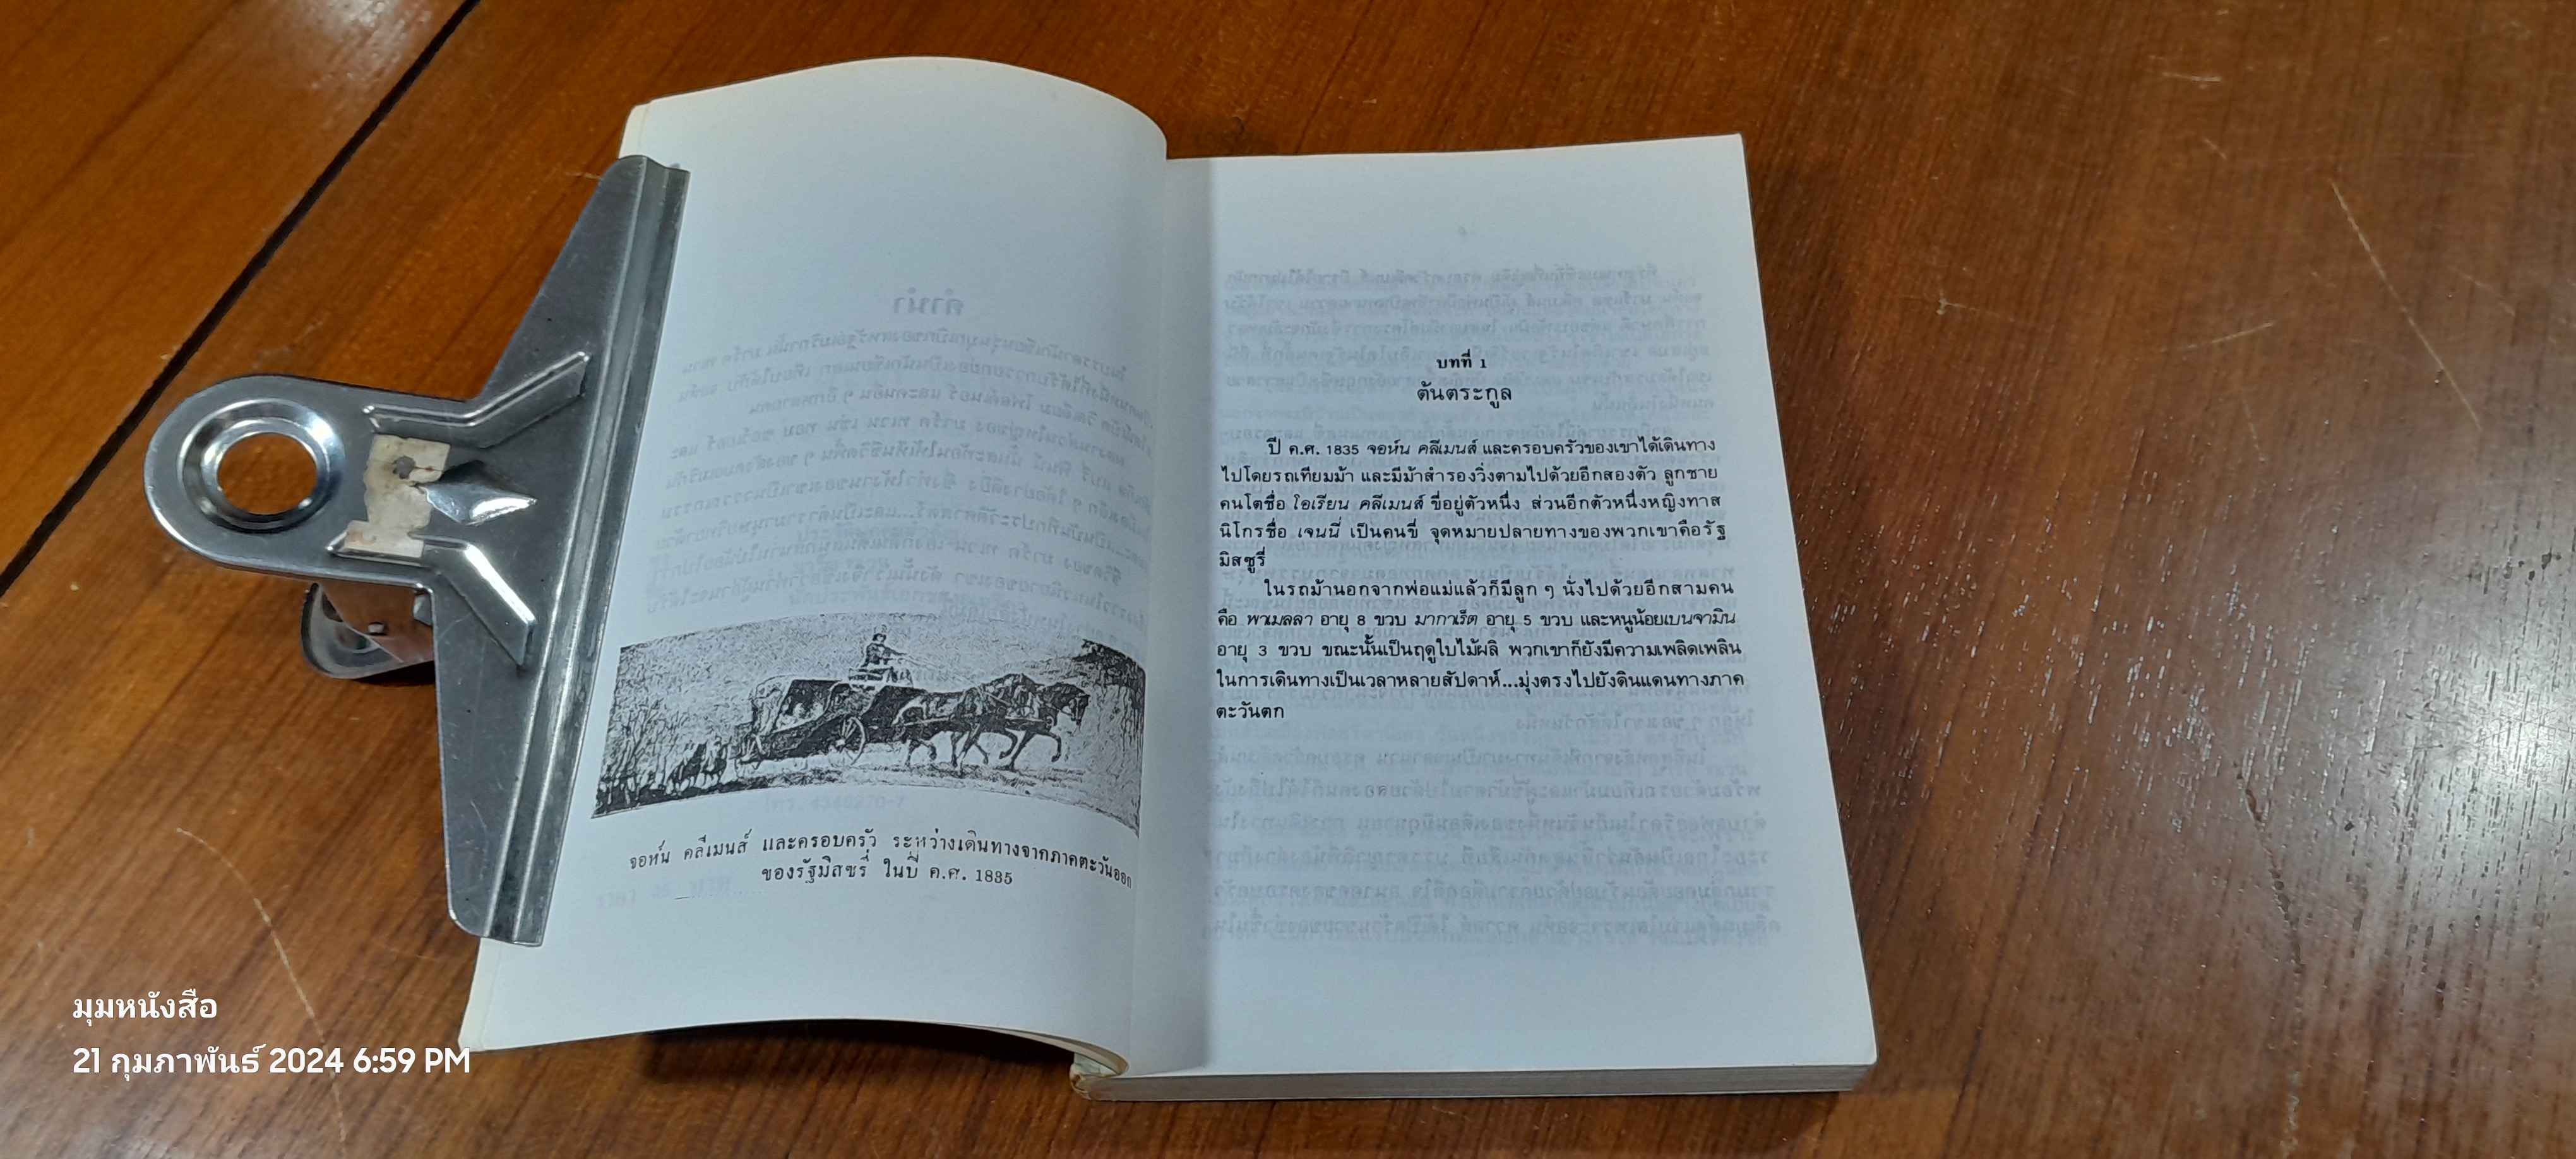 จอห์น คลีเมนส์ และครอบครัว ระหว่างเดินทางจากภาคตะวันออก
ของรัฐมิสซูรี่ ในปี ค.ศ. 1835
บทที่ 1
ต้นตระกูล
ปี ค.ศ. 1835 จอห์น คลีเมนส์ และครอบครัวของเขาได้เดินทาง
ไปโดยรถเทียมม้า และมีม้าสำรองวิ่งตามไปด้วยอีกสองตัว ลูกชาย
คนโตชื่อ โอเรียน คลีเมนส์ ขี่อยู่ตัวหนึ่ง ส่วนอีกตัวหนึ่งหญิงทาส
นิโกรชื่อ เจนนี่ เป็นคนขี่ จุดหมายปลายทางของพวกเขาคือรัฐ
มิสซูรี่
ในรถม้านอกจากพ่อแม่แล้วก็มีลูก ๆ นั่งไปด้วยอีกสามคน
คือ พาเมลลา อายุ 8 ขวบ มากาเร็ต อายุ 5 ขวบ และหนูน้อยเบนจามิน
อายุ 3 ขวบ ขณะนั้นเป็นฤดูใบไม้ผลิ พวกเขาก็ยังมีความเพลิดเพลิน
ในการเดินทางเป็นเวลาหลายสัปดาห์...มุ่งตรงไปยังดินแดนทางภาค
ตะวันตก
มุมหนังสือ
21 กุมภาพันธ์ 2024 6:59 PM